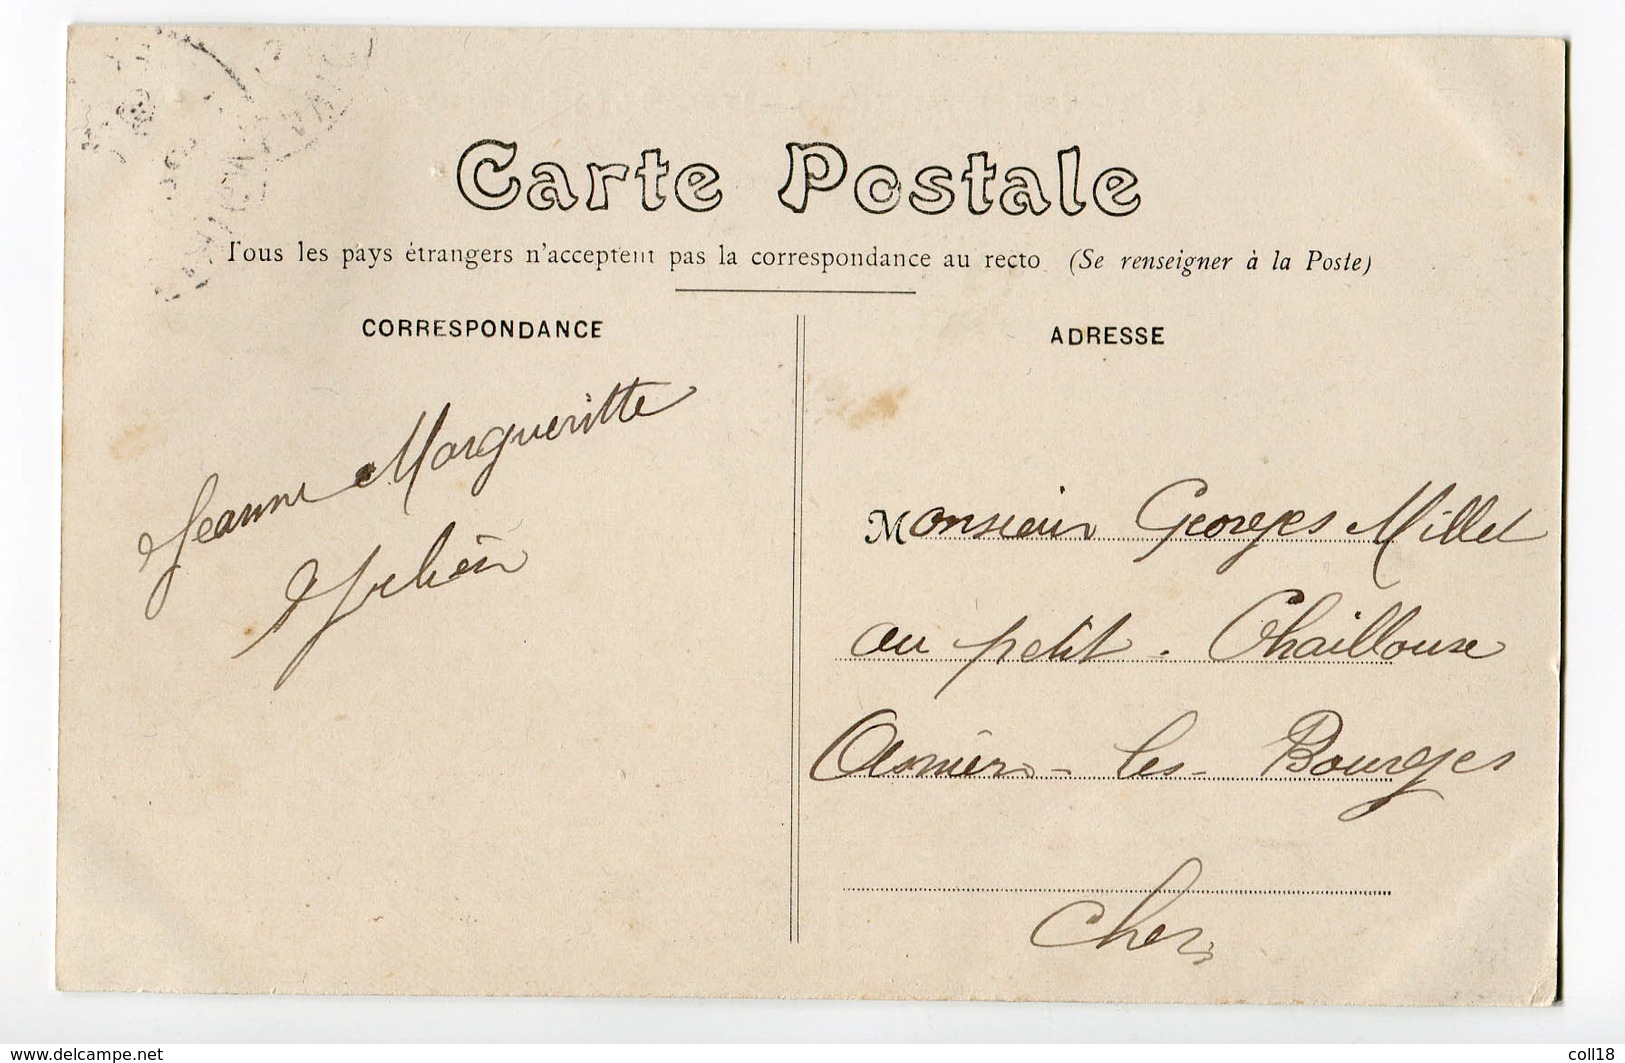 Carte Postale
Tous les pays étrangers n'acceptent pas la correspondance au recto (Se renseigner à la Poste)
CORRESPONDANCE
Jeanne Margueritte
ADRESSE
Monsieur Georges Millet
au petit - Chaillouse
Asnièrs - les - Bourges
Cher
www.delcampe.net
coll18